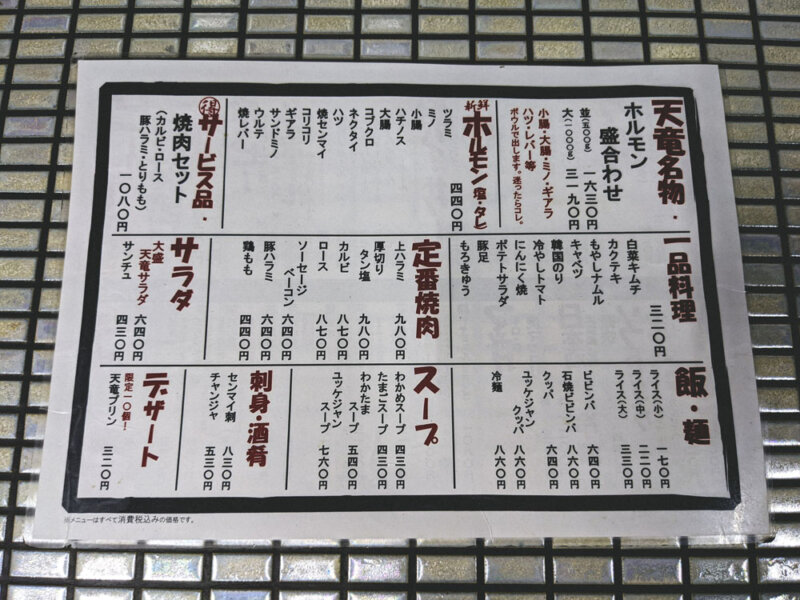 天竜名物・
ホルモン
盛合わせ
並(五〇〇g) 一六三〇円
大(一〇〇〇g) 三一九〇円
小腸・大腸・ミノ・ギアラ
ハツ・レバー等
ボウルで出します。迷ったらコレ。
新鮮
ホルモン(塩・タレ)
四四〇円
ツラミ
ミノ
小腸
ハチノス
大腸
コブクロ
ネクタイ
ハツ
焼センマイ
コリコリ
ギアラ
サンドミノ
ウルテ
焼レバー
得
サービス品・
焼肉セット
(カルビ・ロース
豚ハラミ・とりもも)
一〇八〇円
一品料理
三二〇円
白菜キムチ
カクテキ
もやしナムル
キャベツ
韓国のり
冷やしトマト
にんにく焼
ポテトサラダ
豚足
もろきゅう
定番焼肉
上ハラミ 九八〇円
厚切り
タン塩 九八〇円
カルビ 八七〇円
ロース 八七〇円
ソーセージ
ベーコン 六四〇円
豚ハラミ 六四〇円
鶏もも 四四〇円
サラダ
大盛
天竜サラダ 六四〇円
サンチュ 四三〇円
飯・麺
ライス(小) 一七〇円
ライス(中) 二二〇円
ライス(大) 三三〇円
ビビンバ 六四〇円
石焼ビビンバ 八六〇円
クッパ 六四〇円
ユッケジャン
クッパ 八六〇円
冷麺 八六〇円
スープ
わかめスープ 四三〇円
たまごスープ 四三〇円
わかたま
スープ 五四〇円
ユッケジャン
スープ 七六〇円
刺身・酒肴
センマイ刺 八三〇円
チャンジャ 五三〇円
デザート
限定一〇個!
天竜プリン 三二〇円
※メニューはすべて消費税込みの価格です。